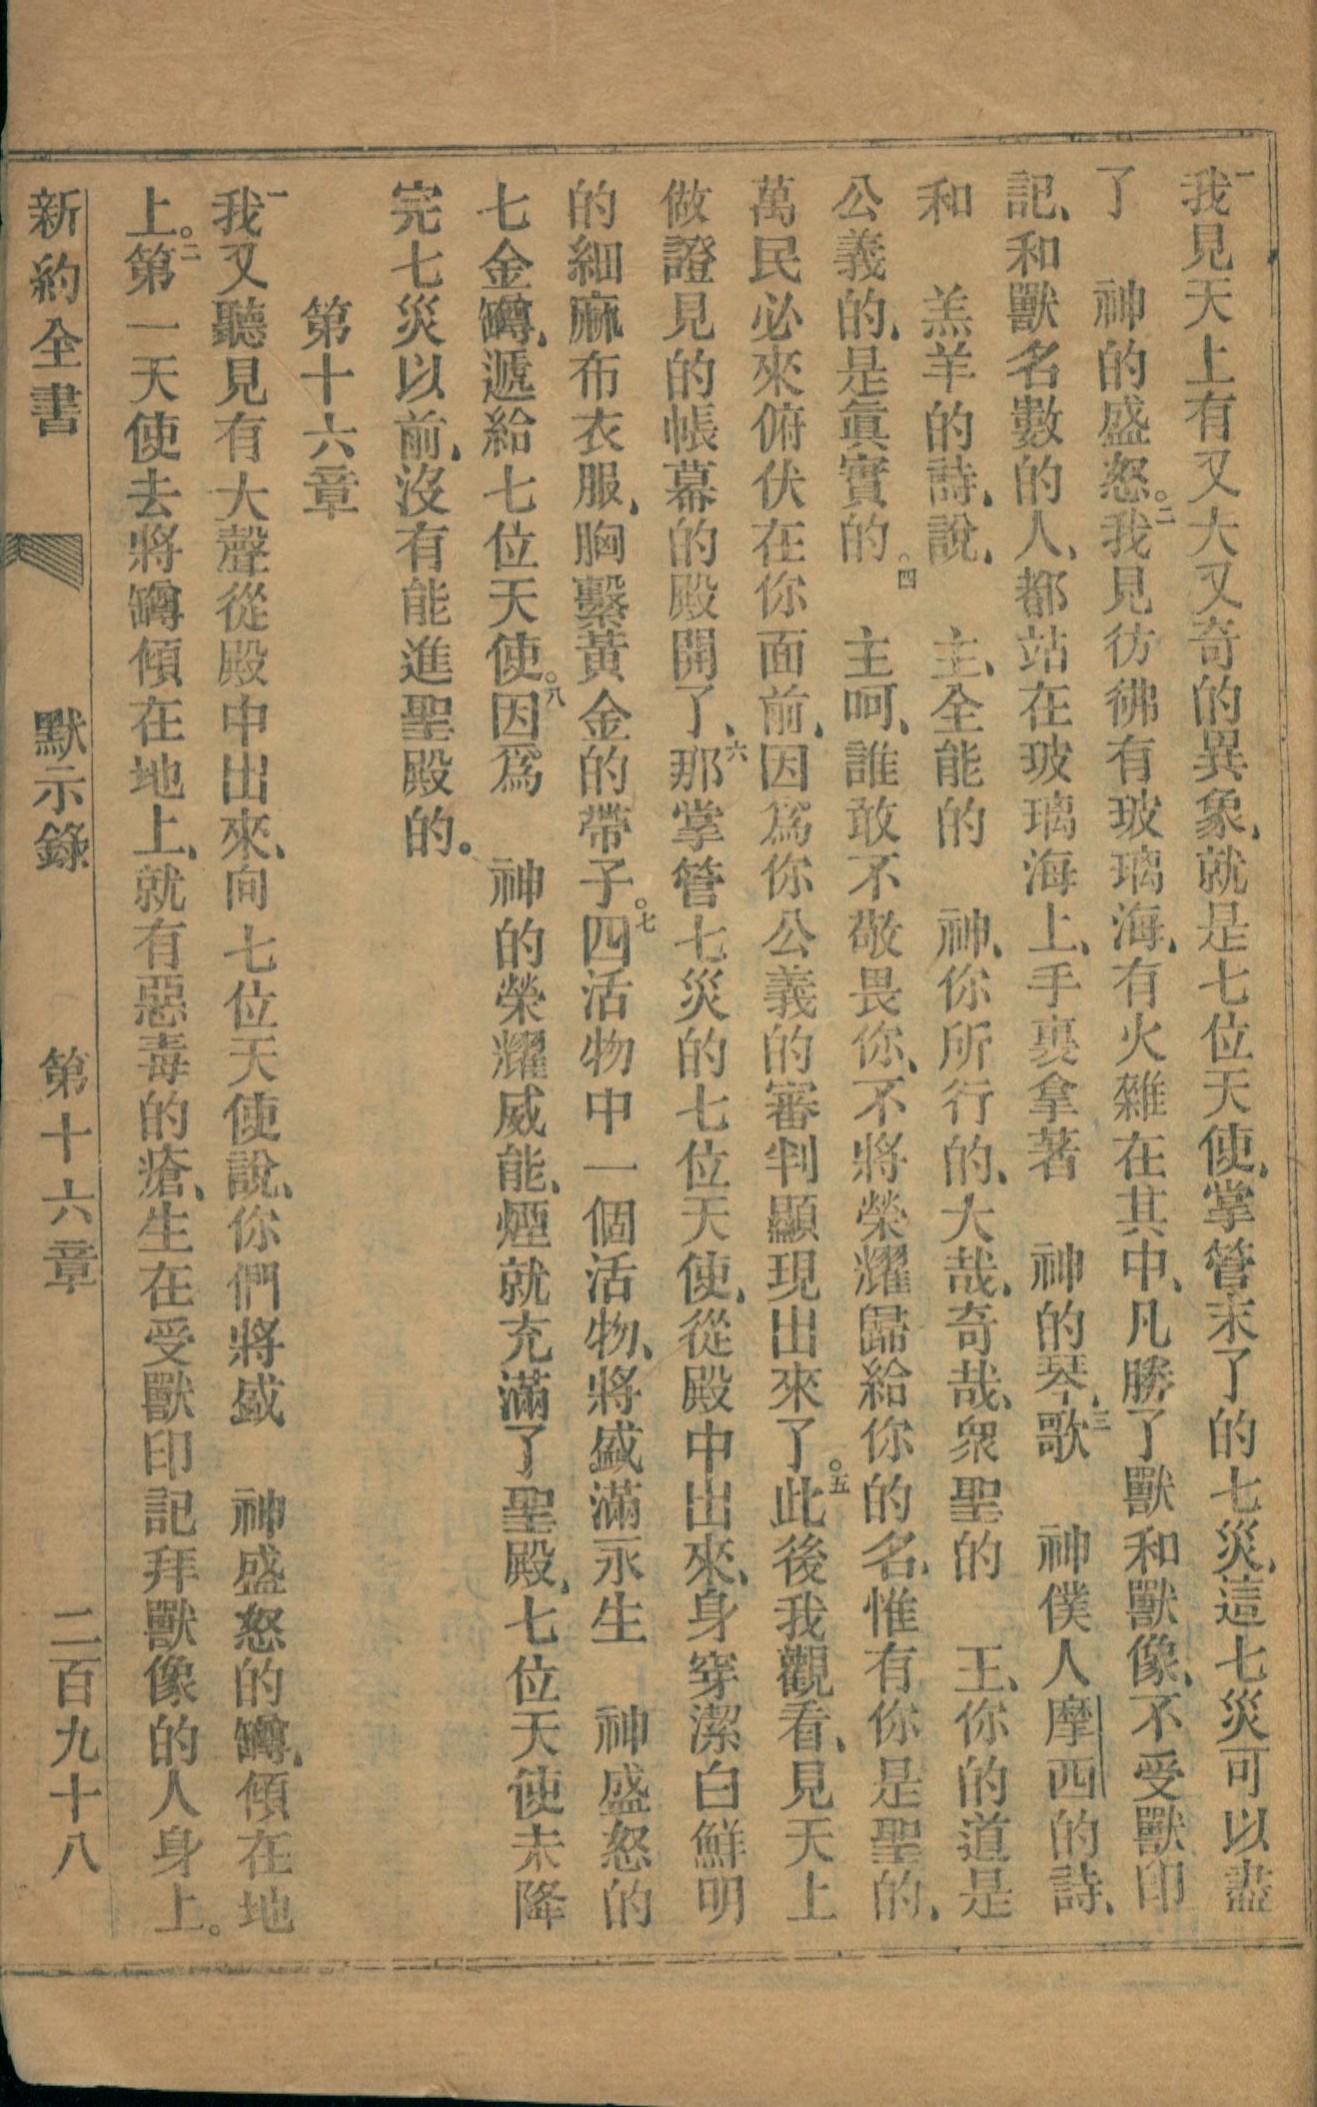 一我見天上有又大又奇的異象、就是七位天使、掌管末了的七災、這七災可以盡
了　神的盛怒。二我見彷彿有玻璃海、有火雜在其中、凡勝了獸和獸像、不受獸印
記、和獸名數的人、都站在玻璃海上、手裏拿著　神的琴、三歌　神僕人摩西的詩、
和　羔羊的詩、說、　主、全能的　神、你所行的、大哉、奇哉、衆聖的　王、你的道是
公義的、是眞實的。四　主呵、誰敢不敬畏你、不將榮耀歸給你的名、惟有你是聖的、
萬民必來俯伏在你面前、因爲你公義的審判顯現出來了。五此後我觀看、見天上
做證見的帳幕的殿開了、六那掌管七災的七位天使、從殿中出來、身穿潔白鮮明
的細麻布衣服、胸繫黃金的帶子。七四活物中一個活物、將盛滿永生　神盛怒的
七金罇、遞給七位天使。八因爲　神的榮耀威能、煙就充滿了聖殿、七位天使未降
完七災以前、沒有能進聖殿的。
第十六章
一我又聽見有大聲從殿中出來、向七位天使說、你們將盛　神盛怒的罇、傾在地
上。二第一天使去將罇傾在地上、就有惡毒的瘡、生在受獸印記拜獸像的人身上。
新約全書　默示錄　第十六章　二百九十八